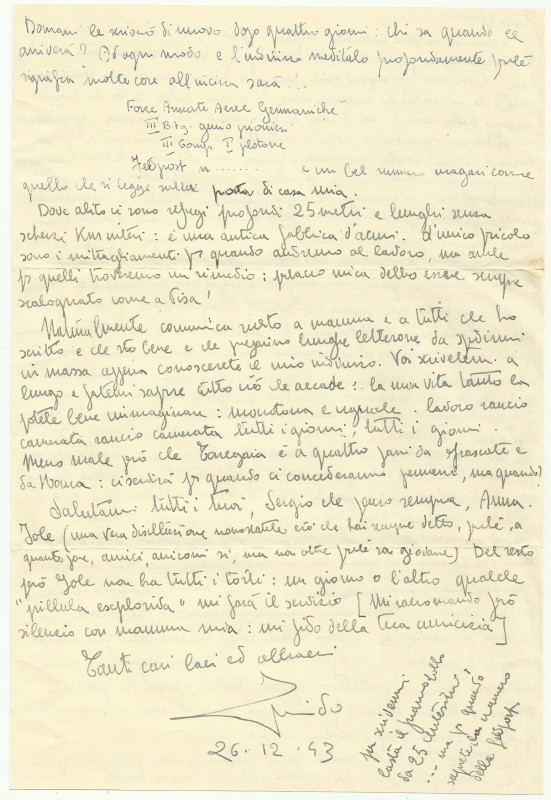 Domani le scriverò di nuovo, dopo quattro giorni: chi sa quando le
arriverà? Ad ogni modo e l'indirizzo meditalo profondamente perché
significa molte cose all'incirca sarà:
Forze Armate Aeree Germaniche
III Btg. genio pionieri
III Comp. I plotone
Feldpost n ........ e un bel numero magari come
quello che si legge sulla porta di casa mia.
Dove abito ci sono rifugi profondi 25 metri e lunghi senza
scherzi Km interi: è una antica fabbrica d'armi. L'unico pericolo
sono i mitragliamenti pr quando andremo al lavoro, ma anche
pr quelli troveremo un rimedio: posso mica debbo essere sempre
scalognato come a Pisa!
Naturalmente comunica presto a mamma e a tutti che ho
scritto e che sto bene e che preparino lunghe letterone da spedirmi
in massa appena conoscerete il mio indirizzo. Voi scrivetemi a
lungo e fatemi sapere tutto ciò che accade: la mia vita tanto la
potete bene immaginare: monotona e uguale. lavoro rancio
camerata rancio camerata tutti i giorni, tutti i giorni.
Meno male però che è a quattro passi da Frascati e
da Roma: ci servirà pr quando ci concederanno permessi, ma quando?
Salutami tutti i tuoi, Sergio che penso sempre, Anna.
Jole (una vera disillusione nonostante ciò che hai sempre detto, perché, a
quanto pare, amici, amiconi si, ma non oltre perché sei giovane) Del resto
però Jole non ha tutti i torti: un giorno o l'altro qualche
"pillula esplosiva" mi farà il servizio [Mi raccomando però
silencio con mamma mia: mi fido della tua amicizia]
Tanti cari baci ed abbracci
Guido
26.12.43
per scrivermi
basta il francobollo
da 25 centesimi
... ma pr quando
saprete il numero
della Feldpost